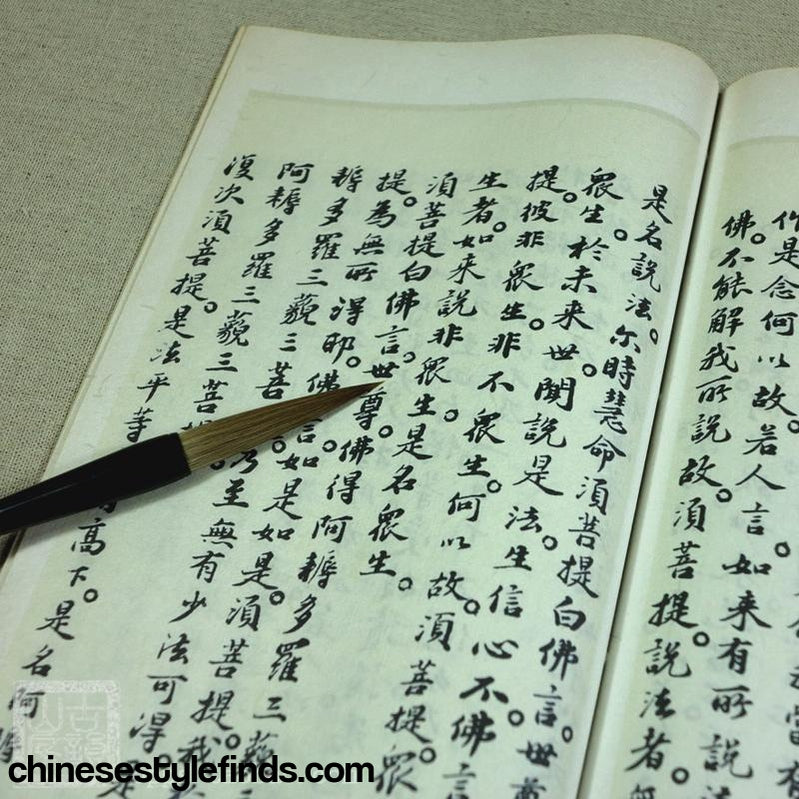 作是念何以故。若人言。如来有所説
佛。不能解我所説故。須菩提。説法者。
是名説法。尒時慧命須菩提白佛言。世尊
眾生。於未来世。聞説是法。生信心不。佛言
提。彼非眾生。非不眾生。何以故。須菩提。眾
生者。如来説非眾生。是名眾生。
須菩提白佛言。世尊。佛得阿耨多羅三藐三
提。為無所得耶。佛言。如是如是。須菩提。我
耨多羅三藐三菩。乃至無有少法可得。是
阿耨多羅三藐三菩提
復次須菩提。是法平等有高下。是名阿耨
chinesestylefinds.com